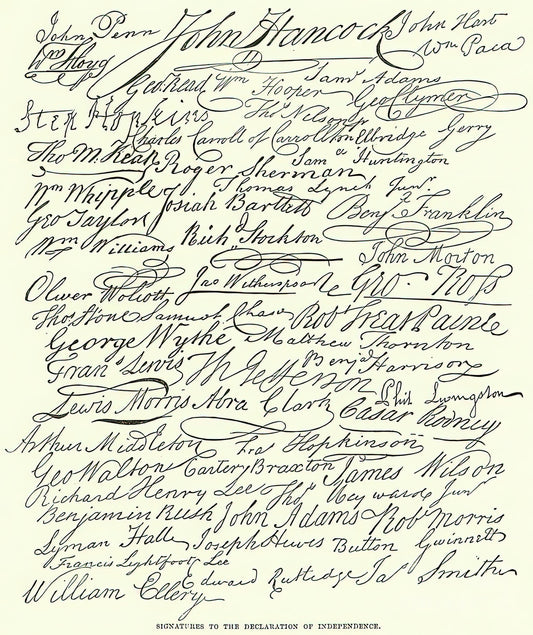 John Penn John Hancock John Hart
Wm Floyd Wm Paca
Geo Read Wm Hooper Saml Adams
Geo Clymer
Step Hopkins Thos Nelson jr
Charles Carroll of Carrollton Elbridge Gerry
Tho M.Kean Roger Sherman Saml Huntington
Wm Whipple Thomas Lynch Junr.
Geo Taylor Josiah Bartlett Benj Franklin
Wm Williams Richd Stockton John Morton
Oliver Wolcott Jno Witherspoon Geo. Ross
Thos Stone Samuel Chase Robt Treat Paine
George Wythe Matthew Thornton
Frans Lewis Th Jefferson Benja Harrison
Lewis Morris Abra Clark Phil Livingston
Cæsar Rodney
Arthur Middleton Fras Hopkinson
Geo Walton Carter Braxton James Wilson
Richard Henry Lee Thos Heyward Junr
Benjamin Rush John Adams Rob Morris
Lyman Hall Joseph Hewes Button Gwinnett
Francis Lightfoot Lee
William Ellery Edward Rutledge Jas Smith
SIGNATURES TO THE DECLARATION OF INDEPENDENCE.